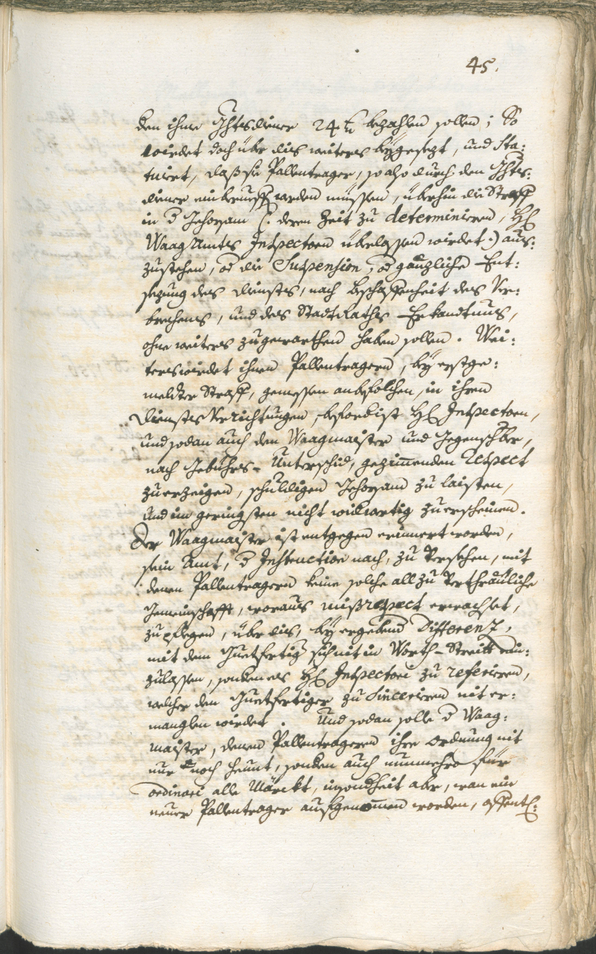 45.
den ihme Ghtsdiener 24 x bezahlen sollen; So
wirdet doch über dis weiters beÿgesezt, und sta:
tuiert, daß die Pallentrager, so also durch den Ghts:
diener werden müessen, überhin die Straff
in d Gehorsamb /: deren Zeit zu determiniren, H:
Waag Ambts Inspectorn überlassen wirdet :/ aus:
zustehen, od die Suspension, od gänzliche Ent:
sezung des diensts, nach beschaffenheit des Ver:
brechens, und des StadtRaths Erkandtnus,
ohne weiters zugewarthen haben sollen. Wei:
ters wirdet ihnen Pallentragern, beÿ erstge:
melter Straff, gemessen anbefolchen, in ihren
diensts Verrichtungen, H: Inspectorn,
und sodan auch den Waagmaister und Gegenschr:,
nach Gebühr Unterschid, gezimmenden Respect
zuerzeigen, schuldigen Gehorsamb zu laisten,
und im geringsten nicht widwertig zu erscheinen.
Der Waagmaister ist entgegen erinnert worden,
sein Ambt, d Instruction nach, zu Versehen, mit
denen Pallentragern keine solche allzu Vertreuliche
Gemeinschafft, woraus misrespect erwachset,
zupflegen, über dis, beÿ ergebend Differenz,
mit dem Guetfertiger sich nit in Worth-Streitt ein:
zulassen, sondern es H: Inspectori zu referiren,
welcher den Guetfertiger zu sinceriren nit er:
manglen wirdet. Und sodan solle d Waag:
maister, denen Pallentragern ihre ordnung nit
nur noch heunt, sondern auch nunmehro für
ordinari alle Märckt, insonderheit aber, wan ein
neuer Pallentrager aufgenommen worden, offentl: